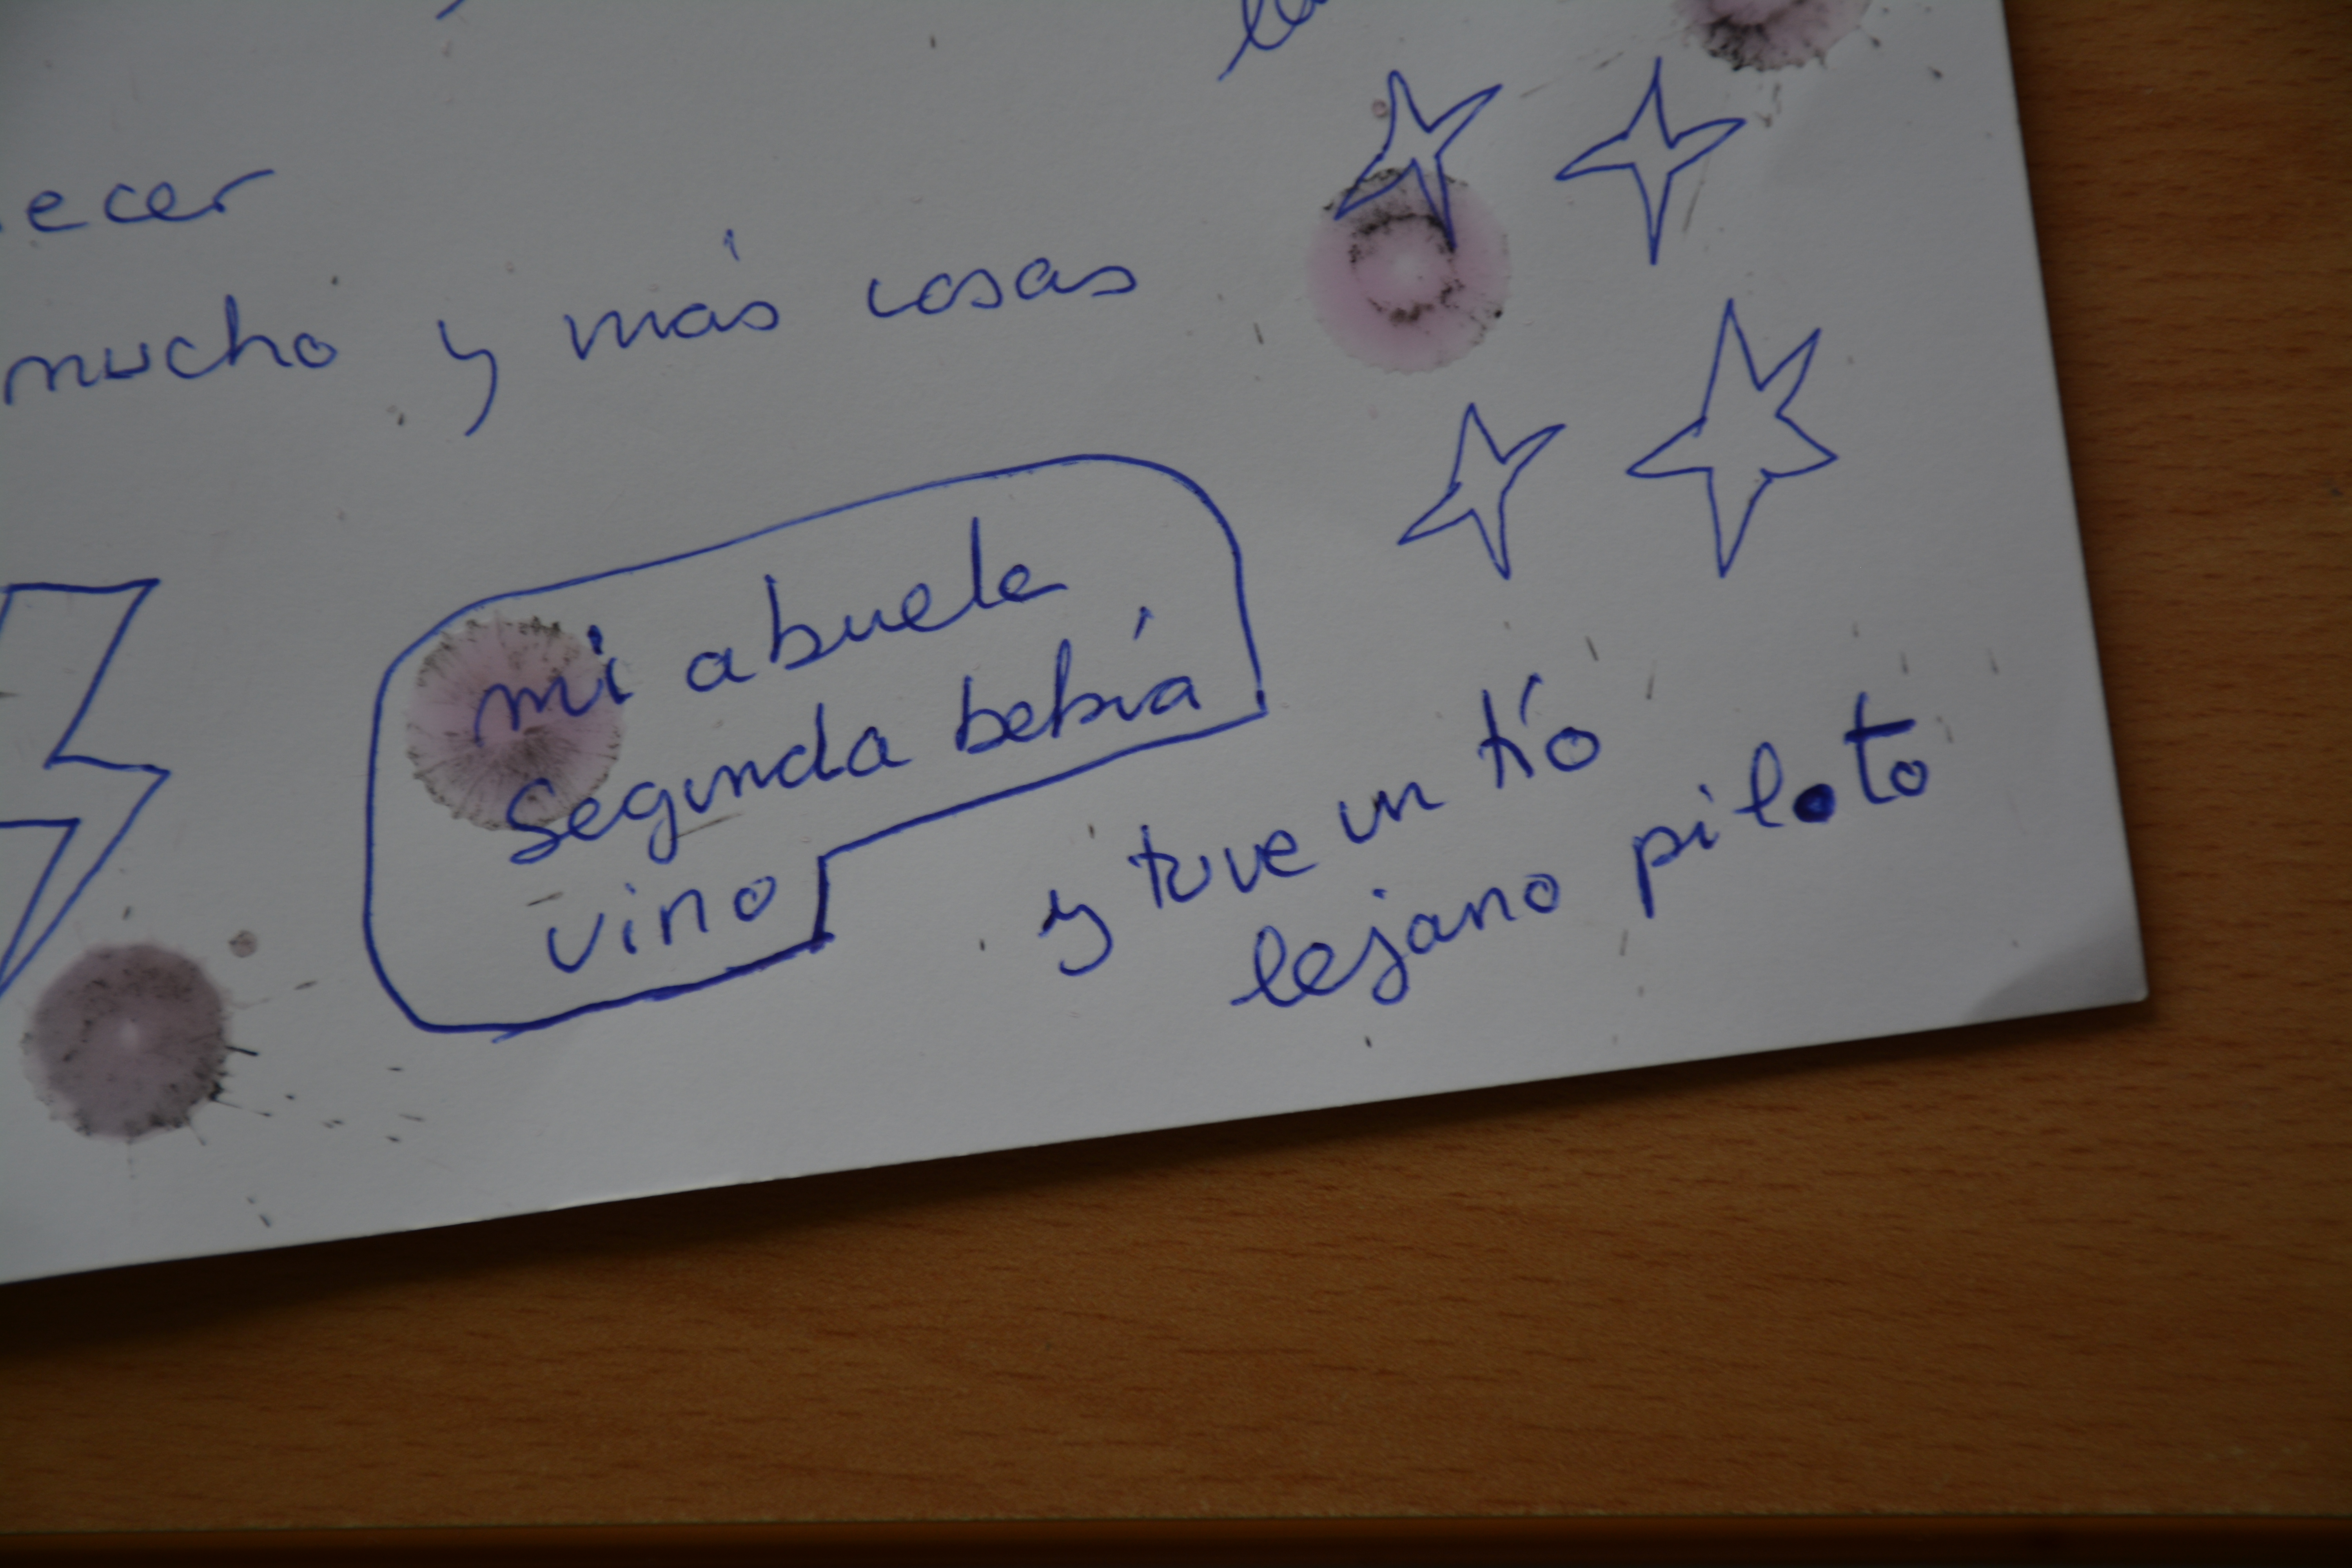 mucho y más cosas
mi abuela
segunda bebía
vino
y tuve un tío
lejano piloto